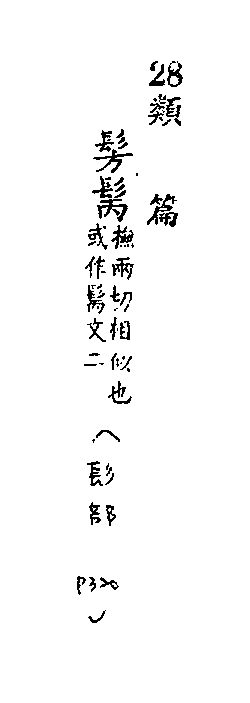 28類篇
髣髴撫兩切相似也
或作髴文二
(髟部 P320)